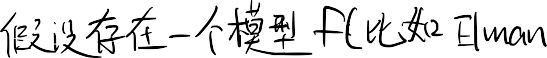 假设存在一个模型 F(比如Elman